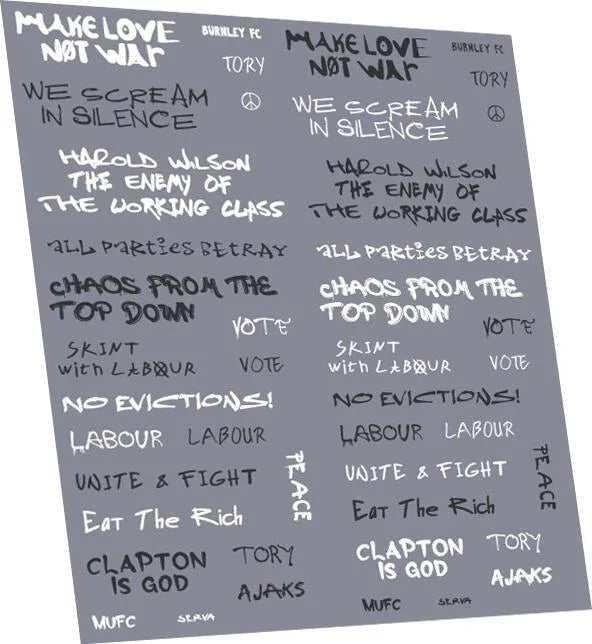 MAKE LOVE
NØT WAr
BURNLEY FC
TORY
WE SCREAM
IN SILENCE
HAROLD WILSON
THE ENEMY OF
THE WORKING CLASS
aLL ParTies BETRAY
cHAOS FROM THE
TOP DOWN
VOTE
SKINT
with LABOUR
VOTE
NO EVICTIONS!
LABOUR
LABOUR
UNITE & FIGHT
PEACE
EaT The Rich
CLAPTON
IS GOD
TORY
AJAKS
MUFC
SERVA
MAKE LOVE
NØT WAr
BURNLEY FC
TORY
WE SCREAM
IN SILENCE
HAROLD WILSON
THE ENEMY OF
THE WORKING CLASS
aLL ParTies BETRAY
cHAOS FROM THE
TOP DOWN
VOTE
SKINT
with LABOUR
VOTE
NO EVICTIONS!
LABOUR
LABOUR
UNITE & FIGHT
PEACE
EaT The Rich
CLAPTON
IS GOD
TORY
AJAKS
MUFC
SERVA